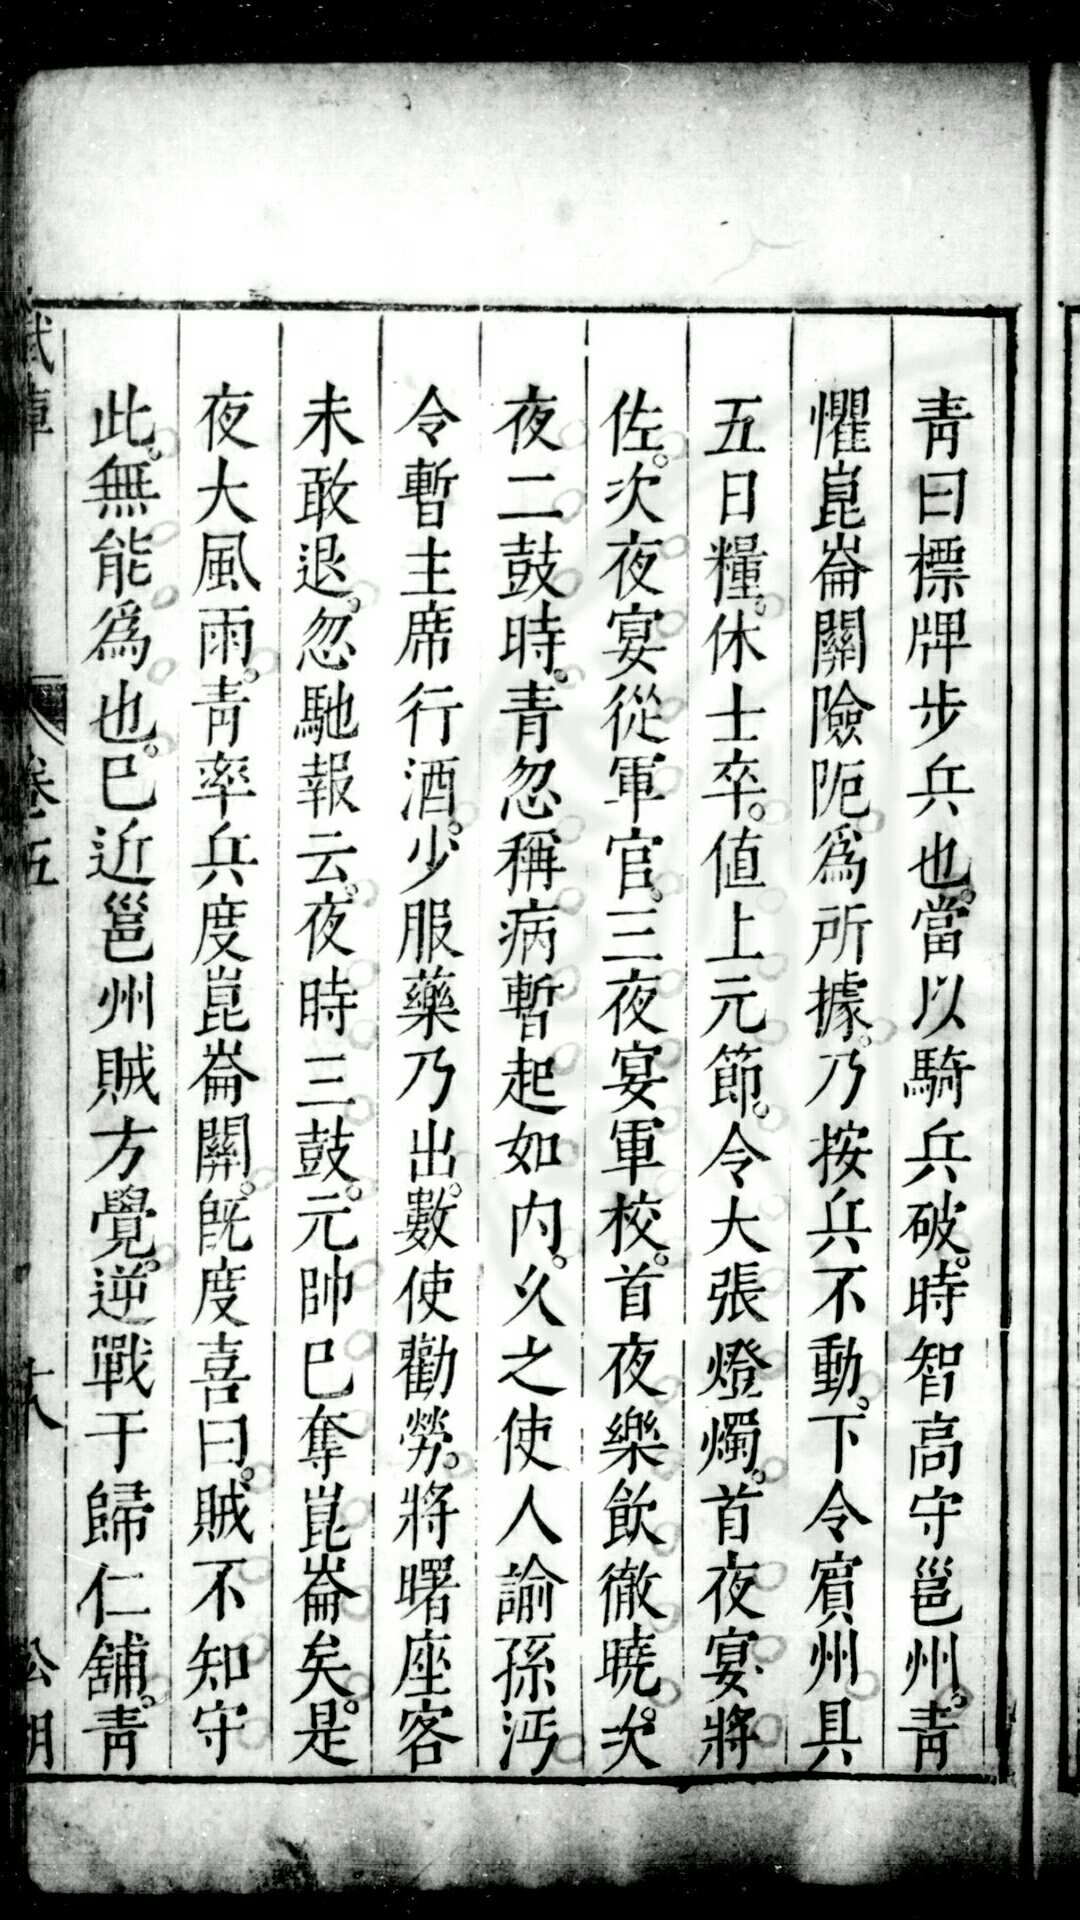 青曰標牌步兵也當以騎兵破時智高守邕州青
懼崑崙關險阨爲所據乃按兵不動下令賓州具
五日糧休士卒值上元節令大張燈燭首夜宴將
佐次夜宴從軍官三夜宴軍校首夜樂飲徹曉次
夜二鼓時青忽稱病暫起如内久之使人諭孫沔
令暫主席行酒少服藥乃出數使勸勞將曙座客
未敢退忽馳報云夜時三鼓元帥巳奪崑崙矣是
夜大風雨青率兵度崑崙關旣度喜曰賊不知守
此無能爲也巳近邕州賊方覺逆戰于歸仁舖青
卷五